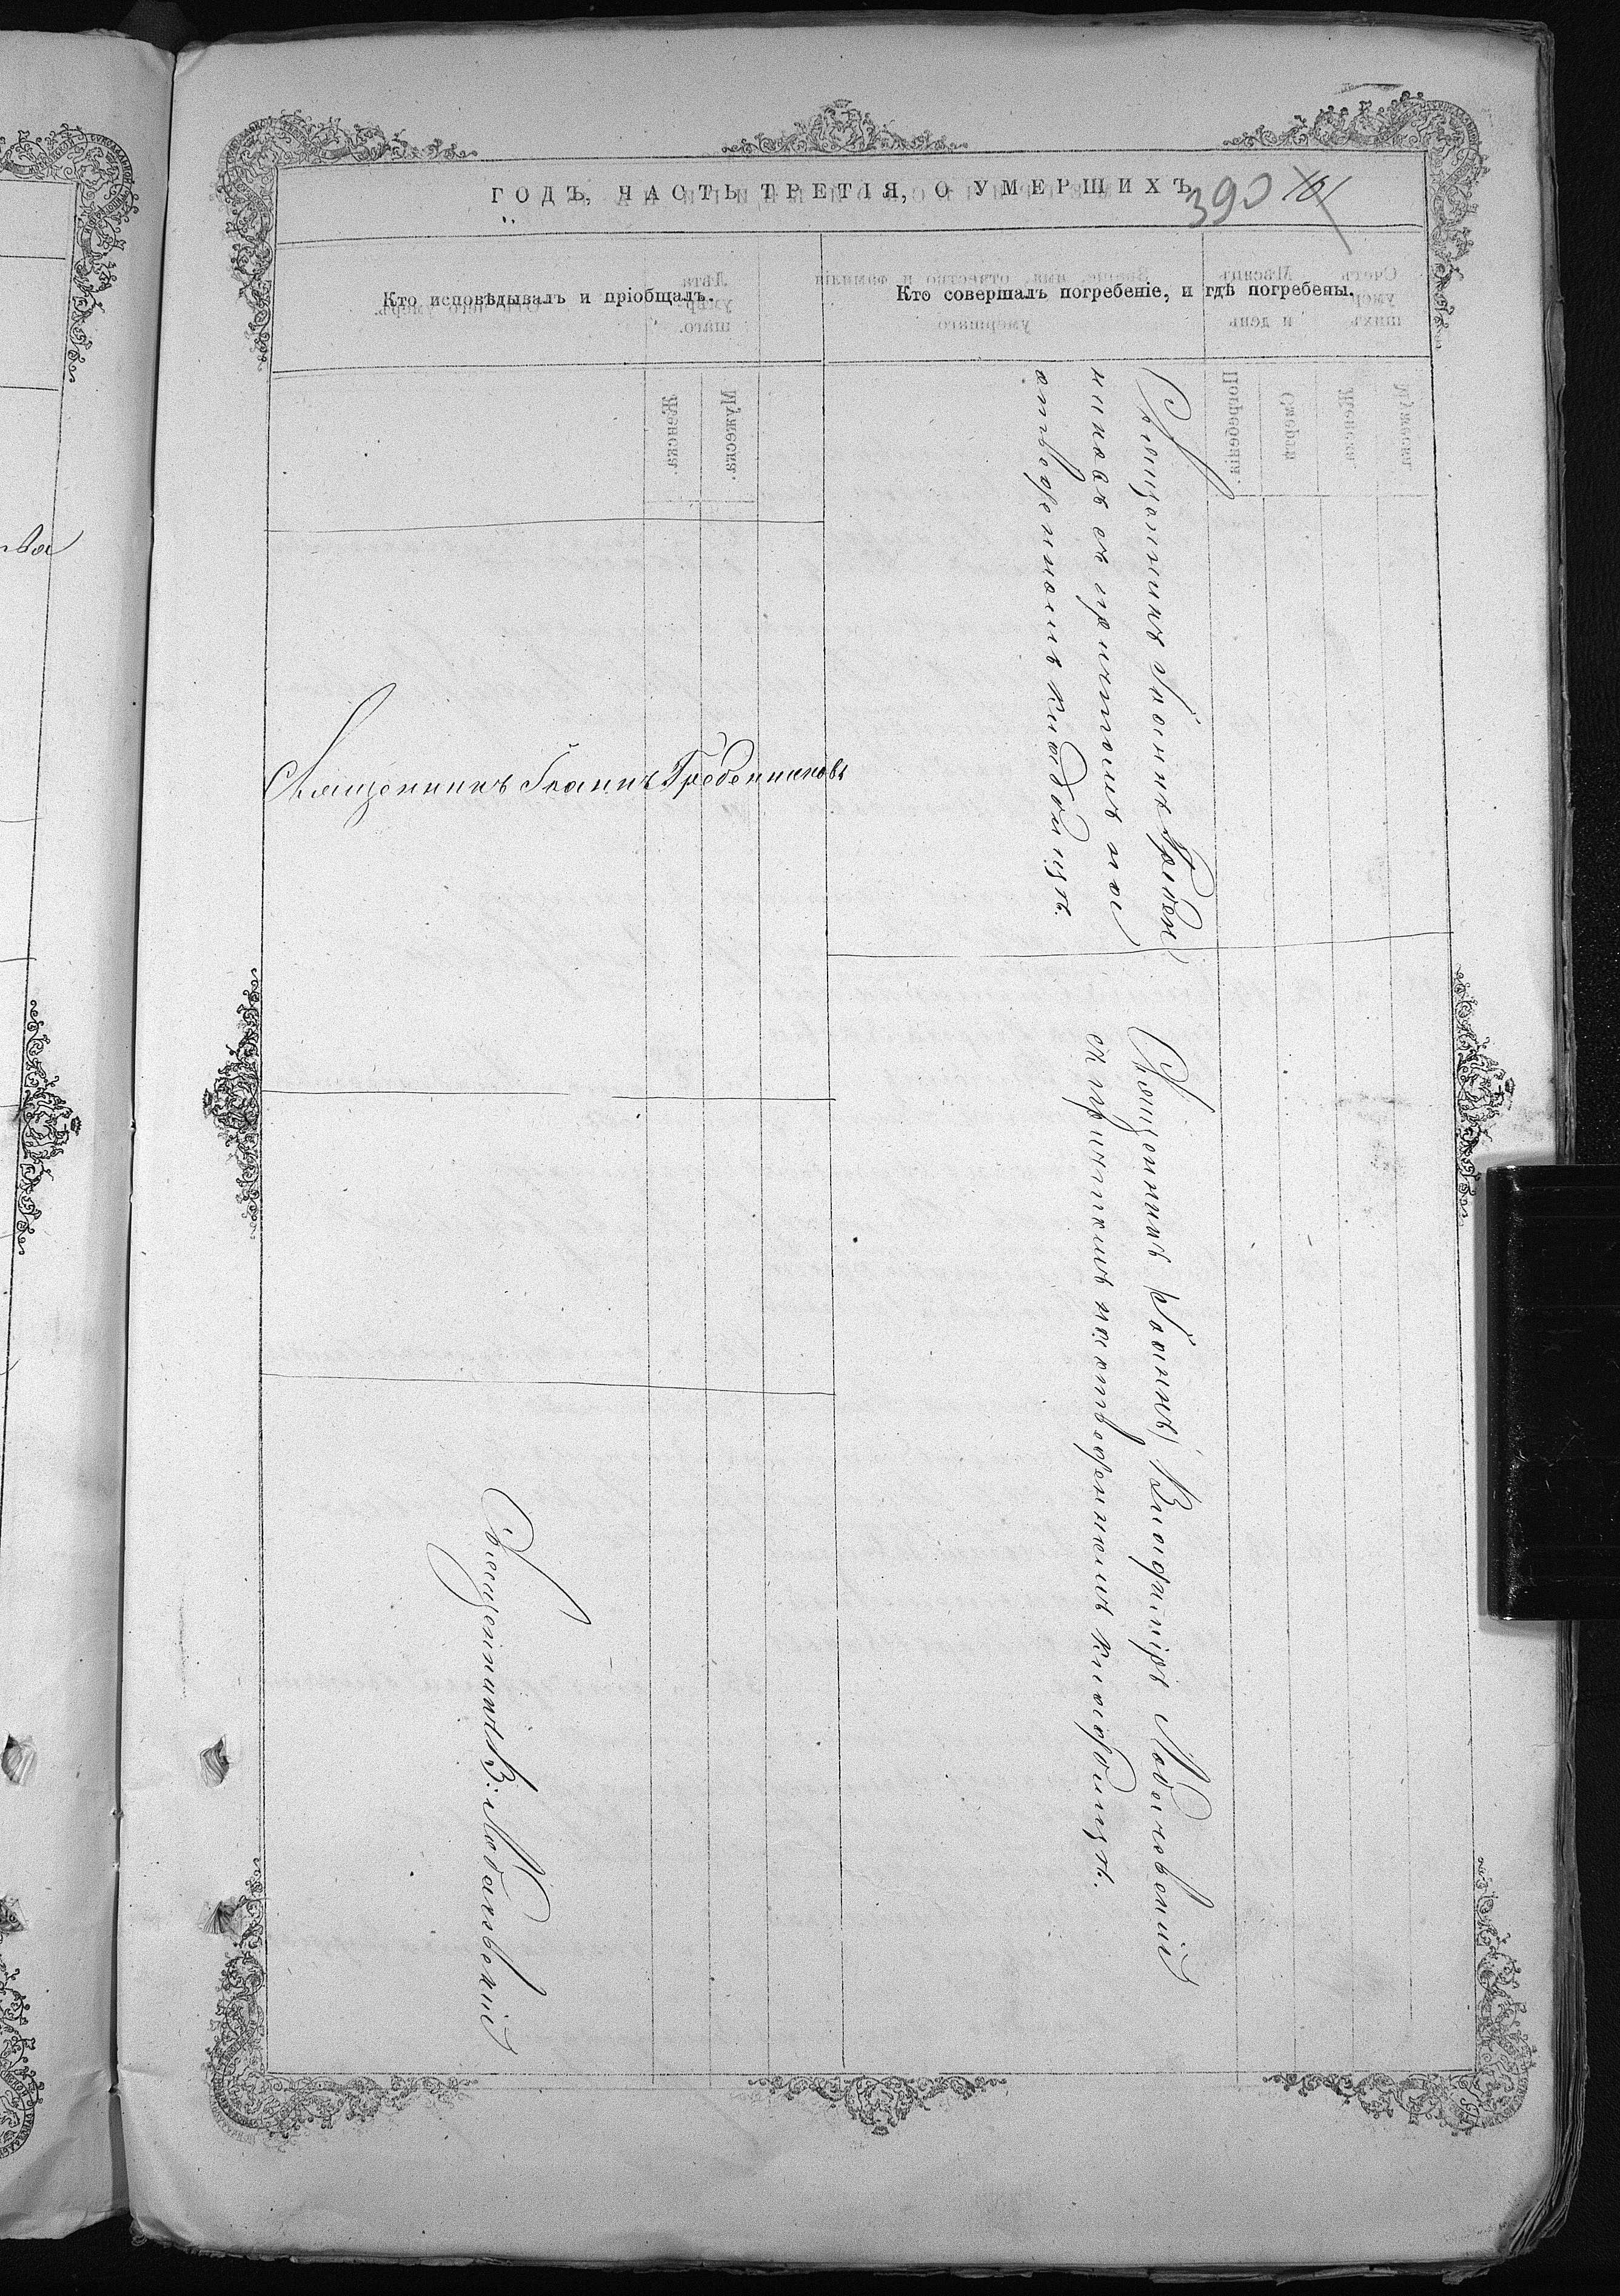 ГОДЪ, ЧАСТЬ ТРЕТІЯ, О УМЕРШИХЪ
390
Кто исповѣдывалъ и пріобщалъ.
Кто совершалъ погребеніе, и гдѣ погребены.
Священникъ Іоаннъ Гребенниковъ
Священникъ В: Лобачевскій
Священникъ Іоаннъ Гребен
никовъ съ причтомъ на
отведенномъ кладбищѣ.
Священникъ Владиміръ Лобачевскій
съ причтомъ на отведенномъ кладбищѣ.